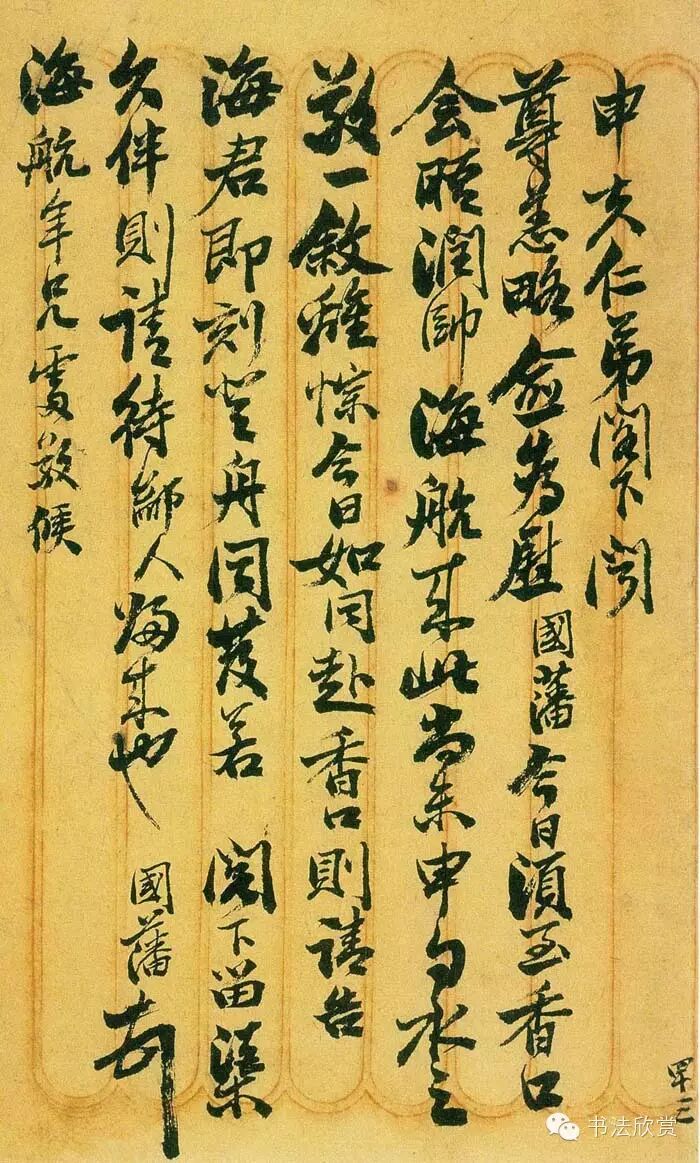 申夫仁弟閣下聞
尊恙略愈為慰國藩今日須至香口
会晤潤帥海航来此尚未申勺水之
敬一敘離悰今日如同赴香口則請告
海君即刻登舟同發若 閣下留渠
久伴則請待鄙人歸来也 國藩
海航年兄處敬候
书法欣赏